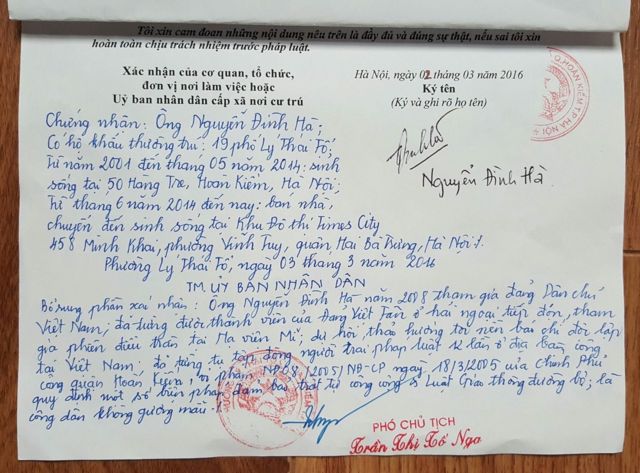 Tôi xin cam đoan những nội dung nêu trên là đầy đủ và đúng sự thật, nếu sai tôi xin
hoàn toàn chịu trách nhiệm trước pháp luật.
Xác nhận của cơ quan, tổ chức,
đơn vị nơi làm việc hoặc
Uỷ ban nhân dân cấp xã nơi cư trú
Hà Nội, ngày 02 tháng 03 năm 2016
Ký tên
(Ký và ghi rõ họ tên)
Nguyễn Đình Hà
Chứng nhận: Ông Nguyễn Đình Hà;
Có hộ khẩu thường trú: 19 phố Lý Thái Tổ,
Từ năm 2001 đến tháng 05 năm 2014: sinh
sống tại 50 Hàng Tre, Hoàn Kiếm, Hà Nội;
Từ tháng 6 năm 2014 đến nay: bán nhà,
chuyển đến sinh sống tại Khu Đô thị Times City
458 Minh Khai, phường Vĩnh Tuy, quận Hai Bà Trưng, Hà Nội./.
Phường Lý Thái Tổ, ngày 03 tháng 3 năm 2016
TM. ỦY BAN NHÂN DÂN
Bổ sung phần xác nhận: Ông Nguyễn Đình Hà năm 2008 tham gia đảng Dân chủ
Việt Nam; đã từng được thành viên của Đảng Việt Tân ở hải ngoại tiếp đón, tham
gia phiên điều trần tại Hạ viện Mĩ; dự hội thảo hướng tới nền báo chí độc lập
tại Việt Nam, đã từng tụ tập đông người trái pháp luật 12 lần ở địa bàn
quận Hoàn Kiếm, vi phạm NĐ 38/2005/NĐ-CP ngày 18/3/2005 của Chính Phủ
quy định một số biện pháp đảm bảo trật tự công cộng & Luật Giao thông đường bộ; là
công dân không gương mẫu./.
PHÓ CHỦ TỊCH
Trần Thị Tố Nga
Q. HOÀN KIẾM TP HÀ NỘI